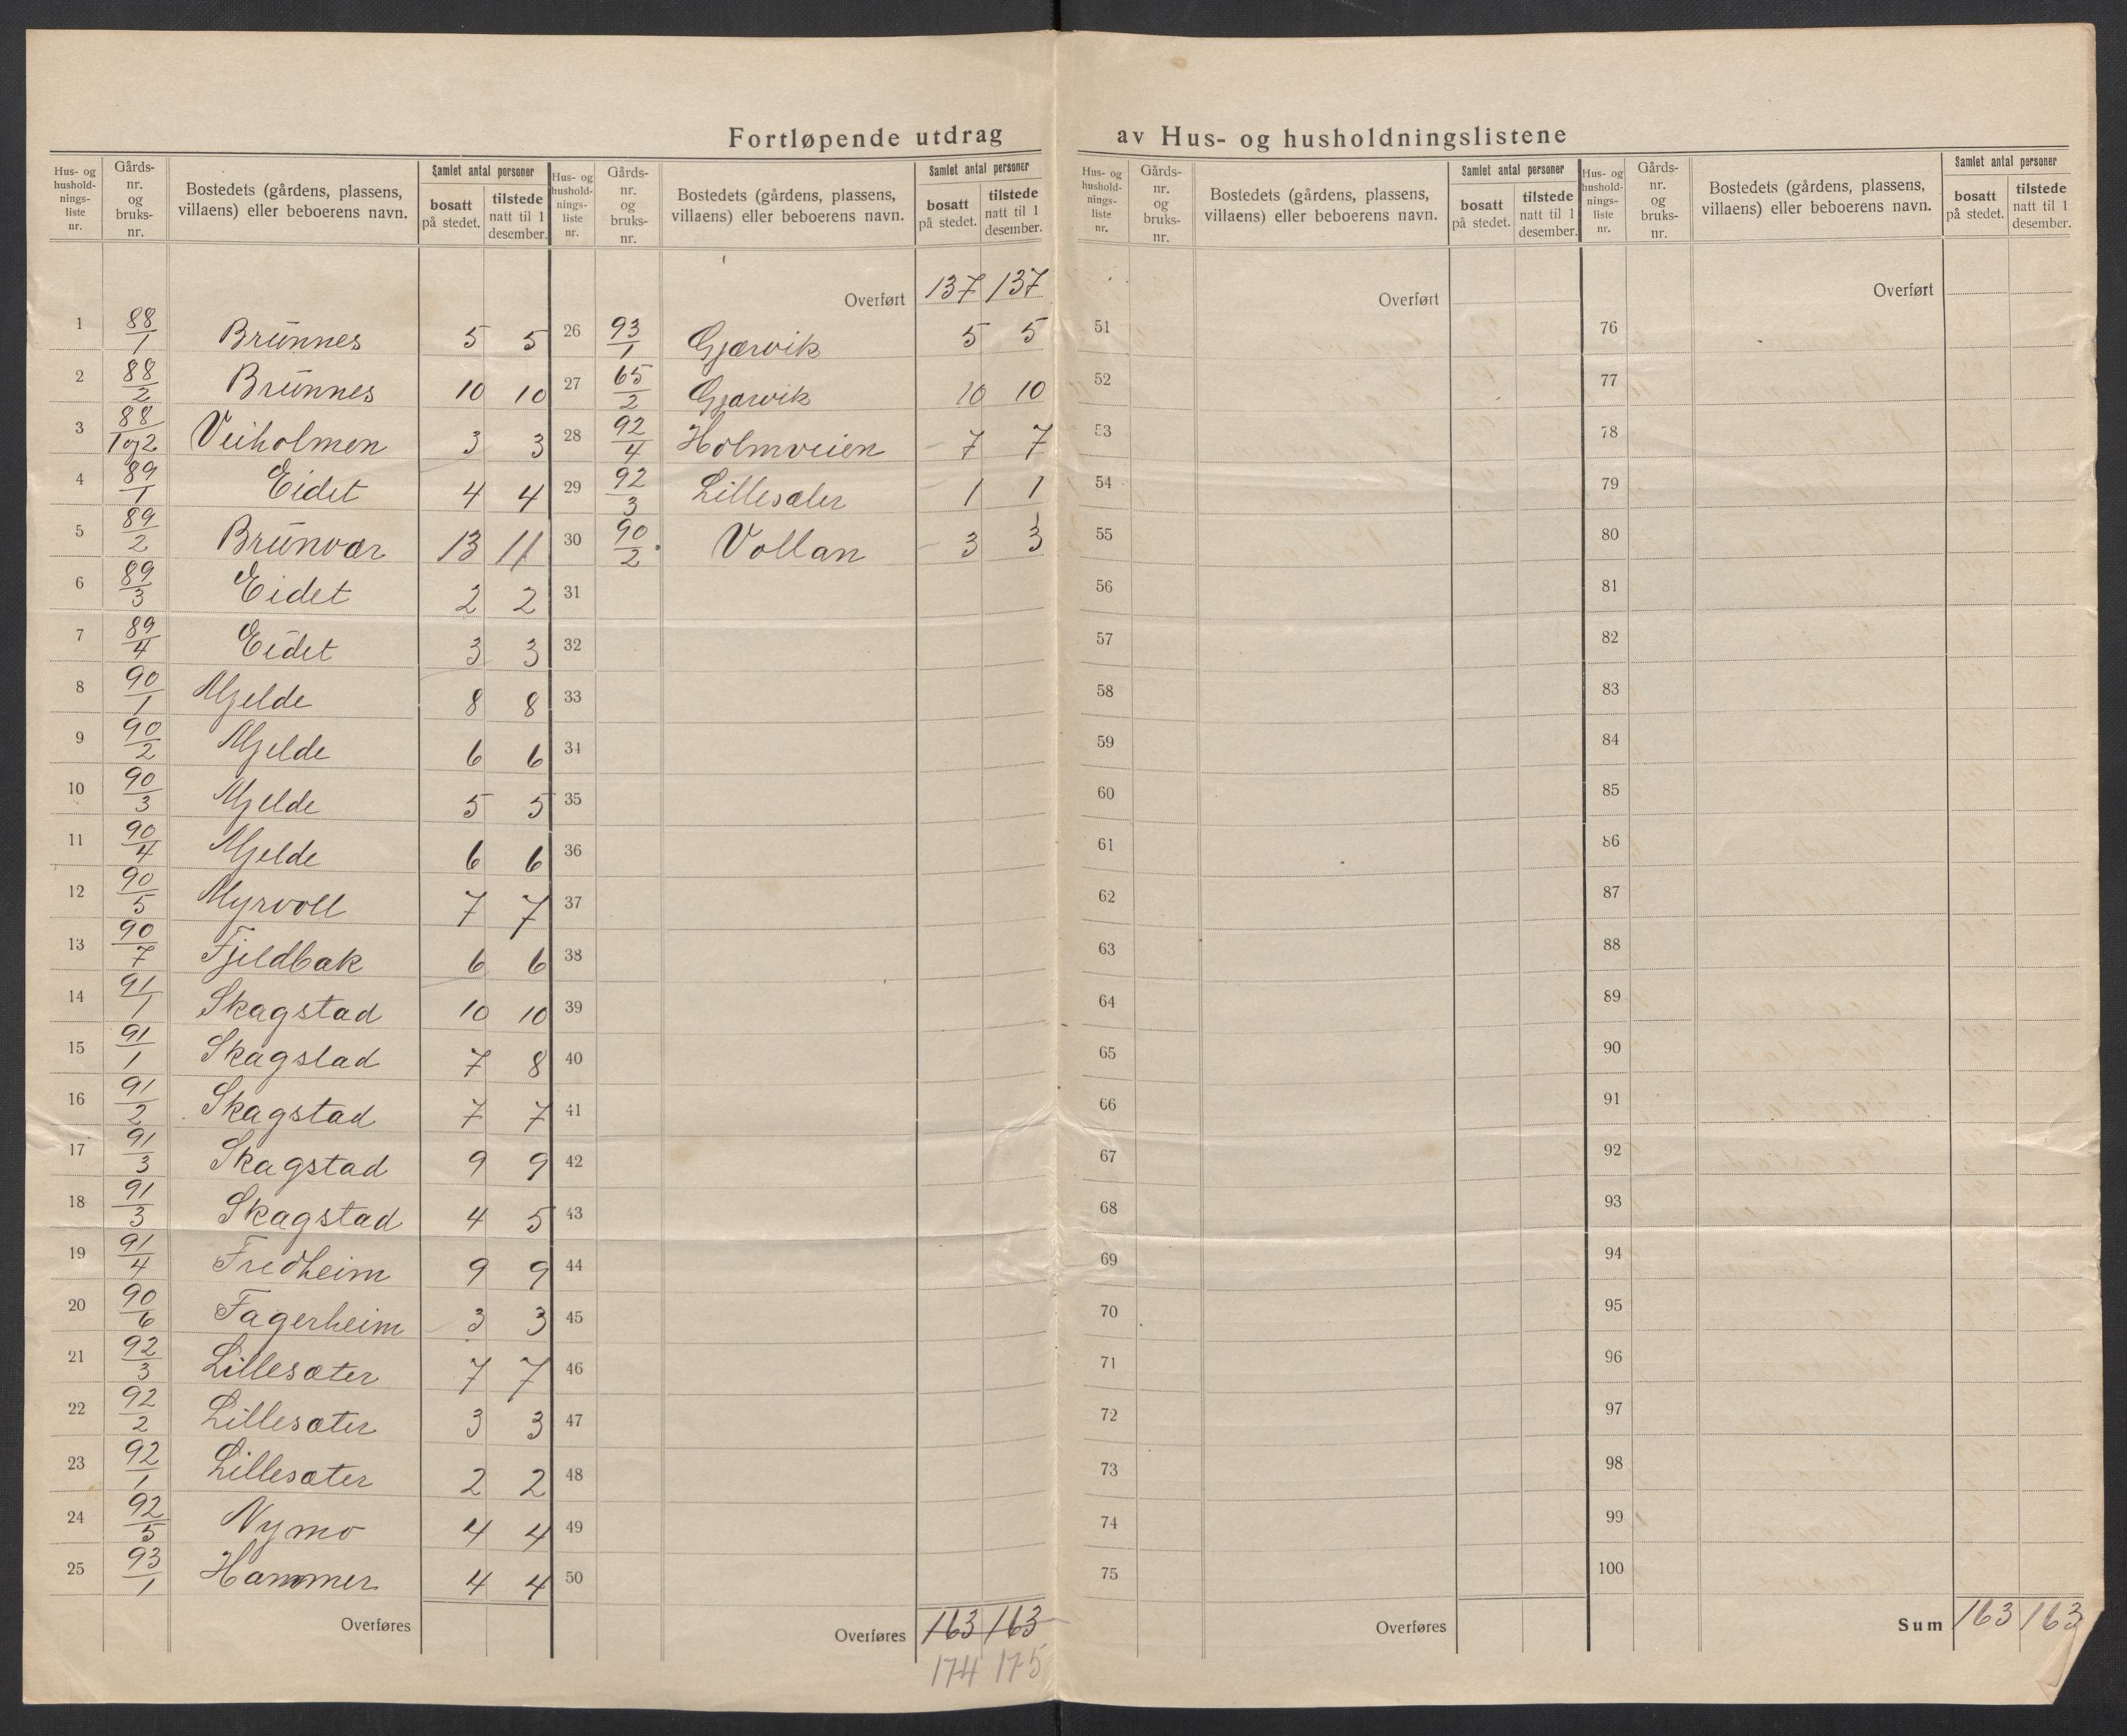 Fortløpende utdrag av Hus- og husholdningslistene
Hus- og hushold-nings-liste nr. | Gårds-nr. og bruks-nr. | Bostedets (gårdens, plassens, villaens) eller beboerens navn. | Samlet antal personer | bosatt på stedet. | tilstede natt til 1 desember.
1 88/1 Brünnes 5 5
2 88/2 Brünnes 10 10
3 88/1og2 Veiholmen 3 3
4 89/1 Eidet 4 4
5 89/2 Brünvær 13 11
6 89/3 Eidet 2 2
7 89/4 Eidet 3 3
8 90/1 Mjelde 8 8
9 90/2 Mjelde 6 6
10 90/3 Mjelde 5 5
11 90/4 Mjelde 6 6
12 90/5 Myrvoll 7 7
13 90/7 Fjeldbak 6 6
14 91/1 Skagstad 10 10
15 91/1 Skagstad 7 8
16 91/2 Skagstad 7 7
17 91/3 Skagstad 9 9
18 91/3 Skagstad 4 5
19 91/4 Fredheim 9 9
20 90/6 Fagerheim 3 3
21 92/3 Lillesæter 7 7
22 92/2 Lillesæter 3 3
23 92/1 Lillesæter 2 2
24 92/5 Nymo 4 4
25 93/1 Hammer 4 4
Overføres
Hus- og hushold-nings-liste nr. | Gårds-nr. og bruks-nr. | Bostedets (gårdens, plassens, villaens) eller beboerens navn. | Samlet antal personer | bosatt på stedet. | tilstede natt til 1 desember.
Overført 137 137
26 93/1 Gjærvik 5 5
27 65/2 Gjærvik 10 10
28 92/4 Holmveien 7 7
29 92/3 Lillesæter 1 1
30 90/2 Vollan 3 3
31
32
33
34
35
36
37
38
39
40
41
42
43
44
45
46
47
48
49
50
Overføres 163 163
174 175
Hus- og hushold-nings-liste nr. | Gårds-nr. og bruks-nr. | Bostedets (gårdens, plassens, villaens) eller beboerens navn. | Samlet antal personer | bosatt på stedet. | tilstede natt til 1 desember.
Overført
51
52
53
54
55
56
57
58
59
60
61
62
63
64
65
66
67
68
69
70
71
72
73
74
75
Overføres
Hus- og hushold-nings-liste nr. | Gårds-nr. og bruks-nr. | Bostedets (gårdens, plassens, villaens) eller beboerens navn. | Samlet antal personer | bosatt på stedet. | tilstede natt til 1 desember.
Overført
76
77
78
79
80
81
82
83
84
85
86
87
88
89
90
91
92
93
94
95
96
97
98
99
100
Sum 163 163